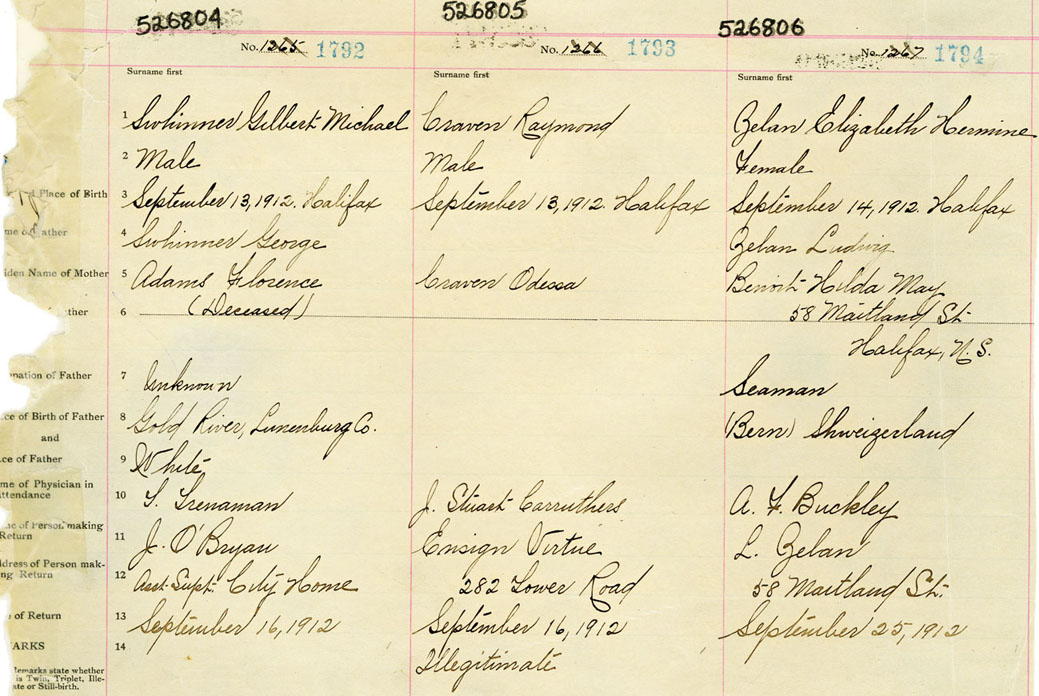 526804 526805 526806
No. 1265 1792 No. 1266 1793 No. 1267 1794
Surname first Surname first Surname first
1 Swhinner Gilbert Michael Craven Raymond Zelan Elizabeth Hermine
2 Male Male Female
Place of Birth 3 September 13, 1912. Halifax September 13, 1912. Halifax September 14, 1912. Halifax
me of Father 4 Swhinner George Zelan Ludwig
iden Name of Mother 5 Adams Florence Craven Odessa Benoit Hilda May
ther 6 (Deceased) 58 Maitland St.
Halifax, N.S.
pation of Father 7 Unknown Seaman
ce of Birth of Father 8 Gold River, Lunenburg Co. (Bern) Shweizerland
and
ce of Father 9 White
me of Physician in
ttendance 10 T. Trenaman J. Stuart Carruthers A. F. Buckley
me of Person making
Return 11 J. O'Bryan Ensign Virtue L. Zelan
ddress of Person mak-
ng Return 12 Asst. Supt. City Home 282 Tower Road 58 Maitland St.
of Return 13 September 16, 1912 September 16, 1912 September 25, 1912
ARKS 14 Illegitimate
Remarks state whether
is Twin, Triplet, Ille-
ate or Still-birth.